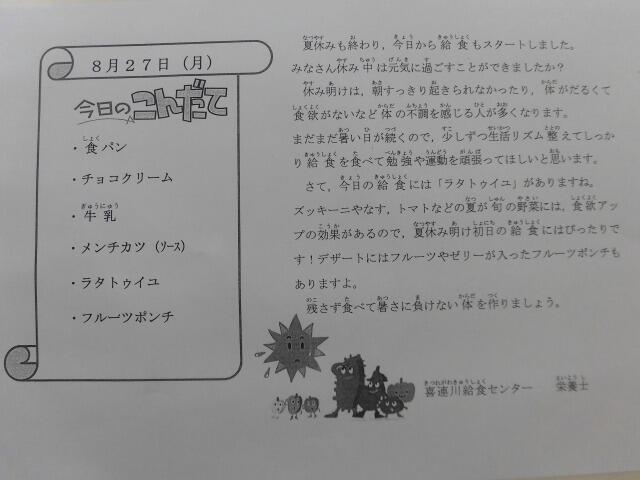 8月27日（月）
今日のこんだて
・食パン
・チョコクリーム
・牛乳
・メンチカツ（ソース）
・ラタトゥイユ
・フルーツポンチ
夏休みも終わり，今日から給食もスタートしました。
みなさん休み中は元気に過ごすことができましたか？
休み明けは，朝すっきり起きられなかったり，体がだるくて
食欲がないなど体の不調を感じる人が多くなります。
まだまだ暑い日が続くので，少しずつ生活リズム整えてしっか
り給食を食べて勉強や運動を頑張ってほしいと思います。
さて，今日の給食には「ラタトゥイユ」がありますね。
ズッキーニやなす，トマトなどの夏が旬の野菜には，食欲アッ
プの効果があるので，夏休み明け初日の給食にはぴったりで
す！デザートにはフルーツやゼリーが入ったフルーツポンチも
ありますよ。
残さず食べて暑さに負けない体を作りましょう。
喜連川給食センター　栄養士